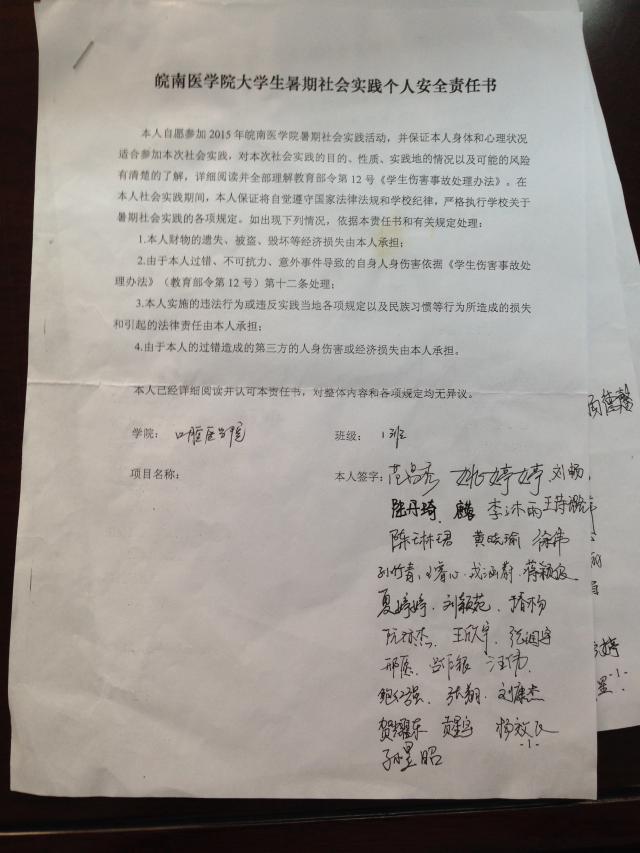 皖南医学院大学生暑期社会实践个人安全责任书
本人自愿参加 2015 年皖南医学院暑期社会实践活动，并保证本人身体和心理状况
适合参加本次社会实践，对本次社会实践的目的、性质、实践地的情况以及可能的风险
有清楚的了解，详细阅读并全部理解教育部令第 12 号《学生伤害事故处理办法》。在
本人社会实践期间，本人保证将自觉遵守国家法律法规和学校纪律，严格执行学校关于
暑期社会实践的各项规定。如出现下列情况，依据本责任书和有关规定处理：
1.本人财物的遗失、被盗、毁坏等经济损失由本人承担；
2.由于本人过错、不可抗力、意外事件导致的自身人身伤害依据《学生伤害事故处
理办法》（教育部令第 12 号）第十二条处理；
3.本人实施的违法行为或违反实践当地各项规定以及民族习惯等行为所造成的损失
和引起的法律责任由本人承担；
4.由于本人的过错造成的第三方的人身伤害或经济损失由本人承担。
本人已经详细阅读并认可本责任书，对整体内容和各项规定均无异议。
学院： 口腔医学院 班级： 1班
项目名称： 本人签字： 姚婷婷 刘畅
陈丹琦 李沐雨
陈琳珺 黄晓瑜 徐伟
孙竹青
夏婷婷 刘颖苑
王欣宇
邢愿 汪伟
鲍仁强 张翔 刘康杰
贺耀东 黄星宇 杨效民
孙昱昭
-1-
婷
-1-